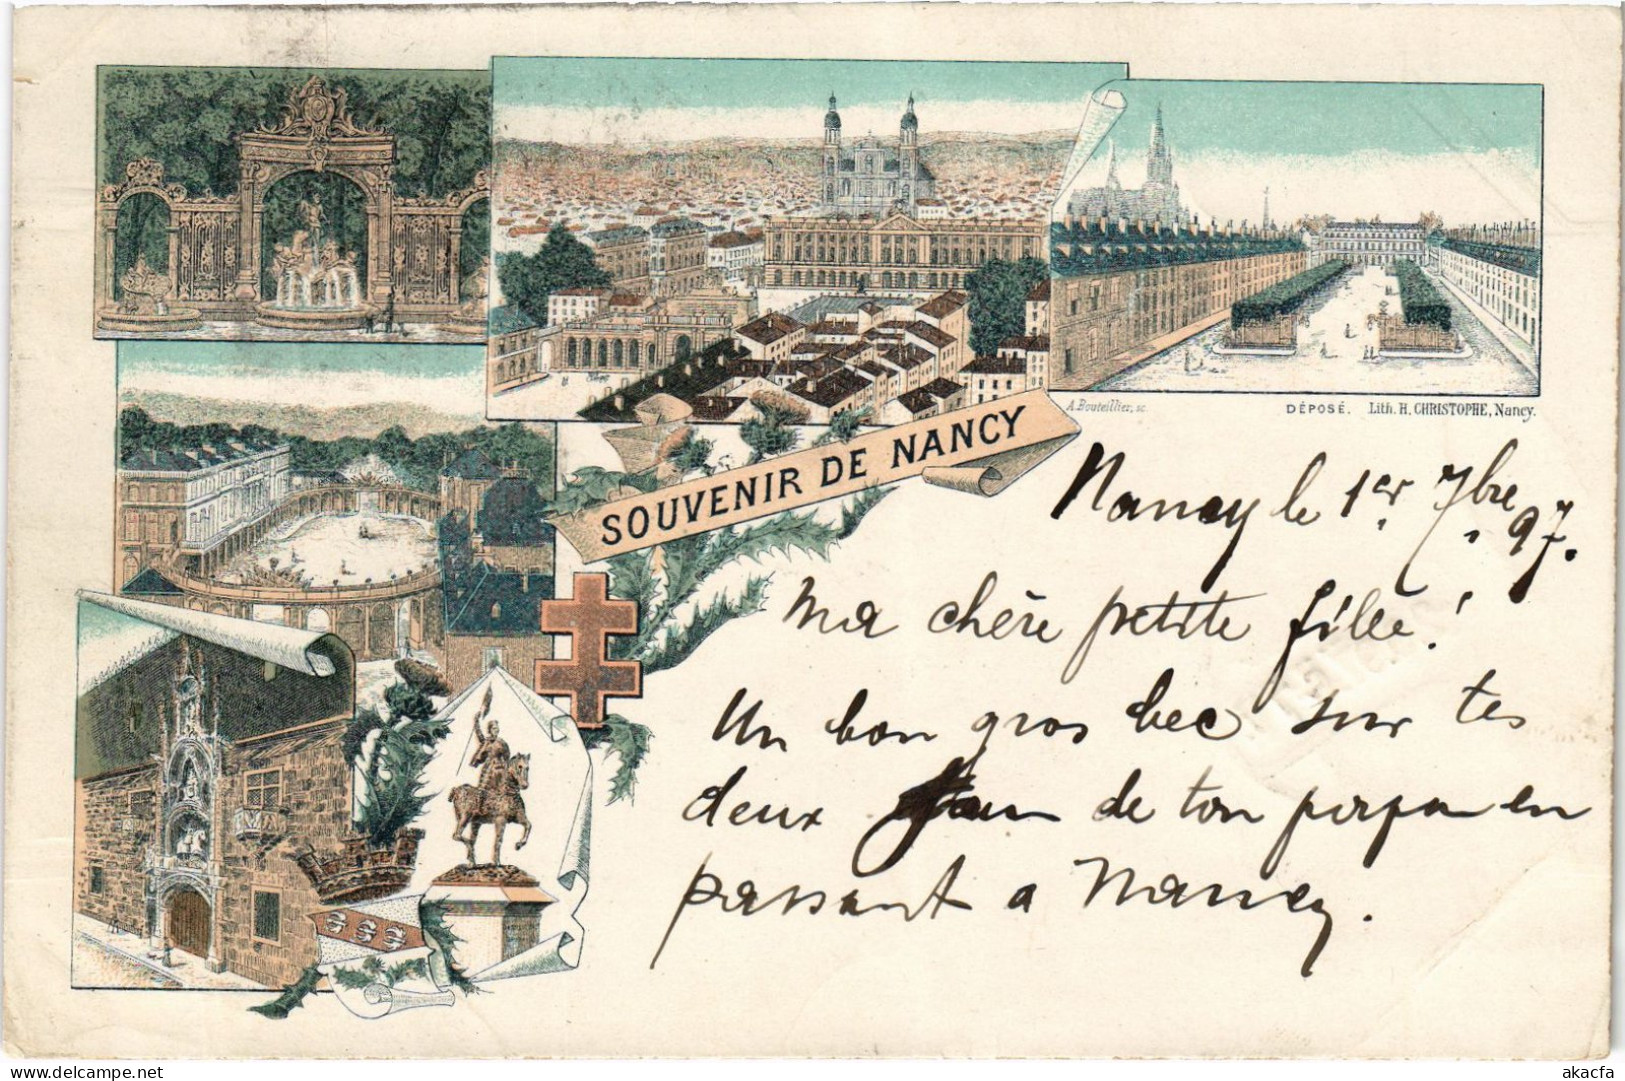 A. Bouteillier, sc.
DÉPOSÉ. Lith. H. CHRISTOPHE, Nancy.
SOUVENIR DE NANCY
Nancy le 1er 7bre 97.
Ma chère petite fillée!
Un bon gros bec sur tes
deux de ton en
passant a Nancy.
akacfa